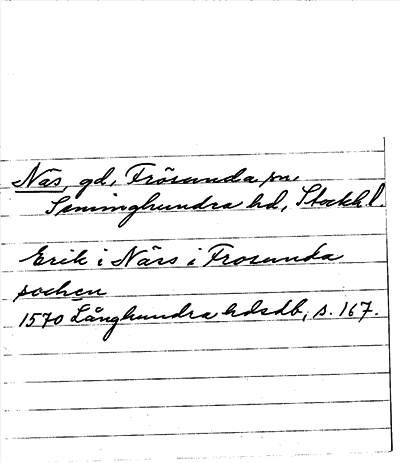 Näs, gd, Frösunda sn.
Seminghundra hd, Stockh l.
Erik i Närs i Frosunda
sochen
1570 Långhundra hdsdb, s. 167.